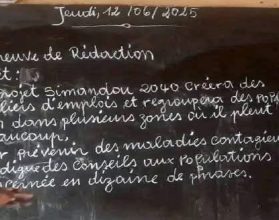 Jeudi, 12/06/2025
reuve de Rédaction
et :
rojet Simandou 2040 Créera des
liers d'emplois et regroupera des Pop
n dans plusieurs zones où il pleut
aucoup,
r prévenir des maladies contagieu
dique des Conseils aux Populations
cernée en dizaine de phrases.